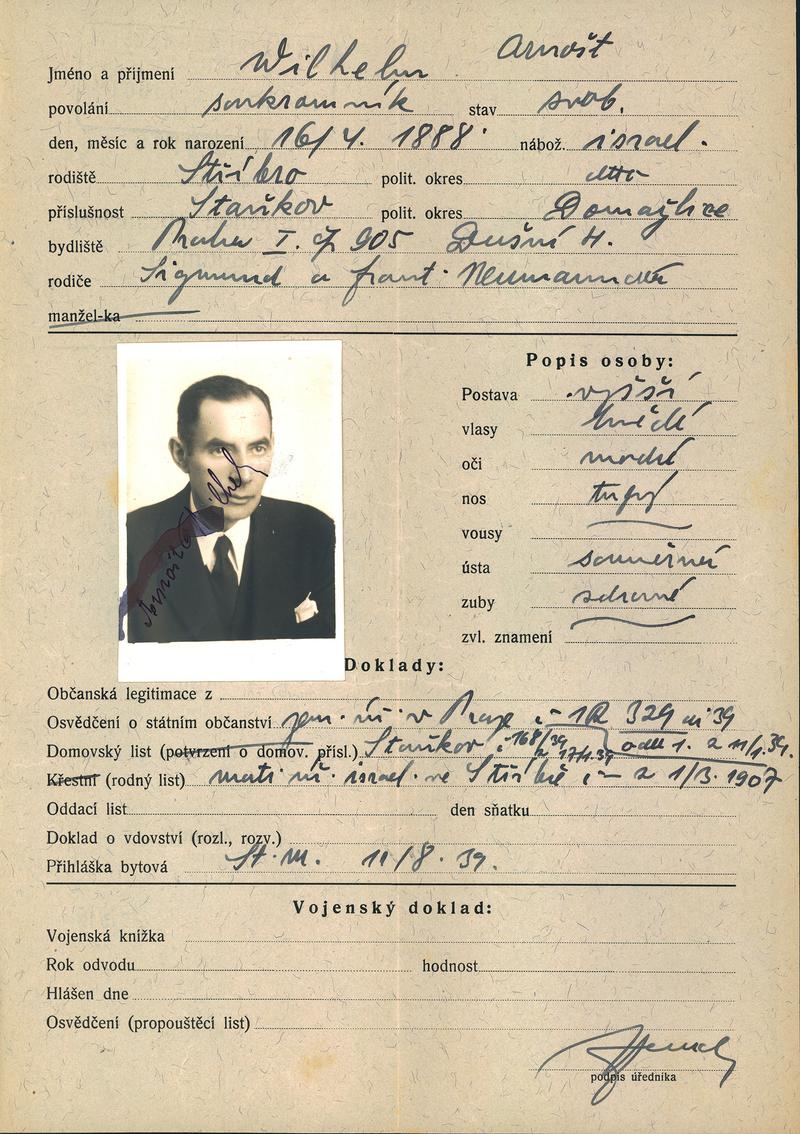 Jméno a příjmení Wilhelm Arnošt
povolání soukromník stav svob.
den, měsíc a rok narození 16/4. 1888. nábož. israel.
rodiště Stříbro polit. okres
příslušnost Staňkov polit. okres Domažlice
bydliště Praha I. čp 905 Dušní 4.
rodiče Sigmund a Frant. Neumannová
manžel-ka
Popis osoby:
Postava vyšší
vlasy hnědé
oči modré
nos tupý
vousy
ústa souměrná
zuby zdravé
zvl. znamení
Arnošt Wilhelm
Doklady:
Občanská legitimace z
Osvědčení o státním občanství zem. úř. v Praze č– 1R 329 ai 39
odděl 1. z 11/1.39.
Domovský list (potvrzení o domov. přísl.) Staňkov č 168/39 z 17/1.39
Křestní (rodný list) mati úř. israel. ve Stříbře č– z 1/3. 1907
Oddací list den sňatku
Doklad o vdovství (rozl., rozv.)
Přihláška bytová St. m. 11/8. 39.
Vojenský doklad:
Vojenská knížka
Rok odvodu hodnost
Hlášen dne
Osvědčení (propouštěcí list)
podpis úředníka